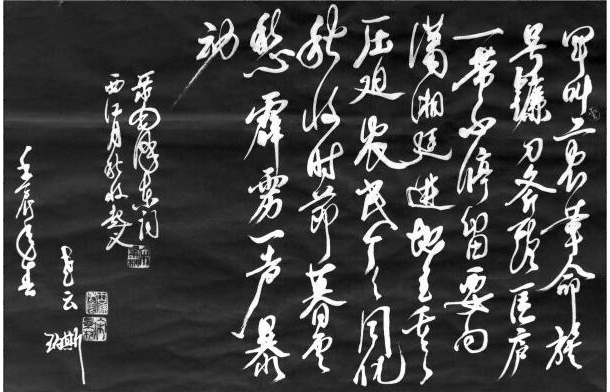 军叫工农革命旗
号镰刀斧头匡庐
一带不停留要向
潇湘直进地主重重
压迫农民个个同仇
秋收时节暮云
愁霹雳一声暴
动
录毛泽东词
西江月秋收起义
壬辰年春